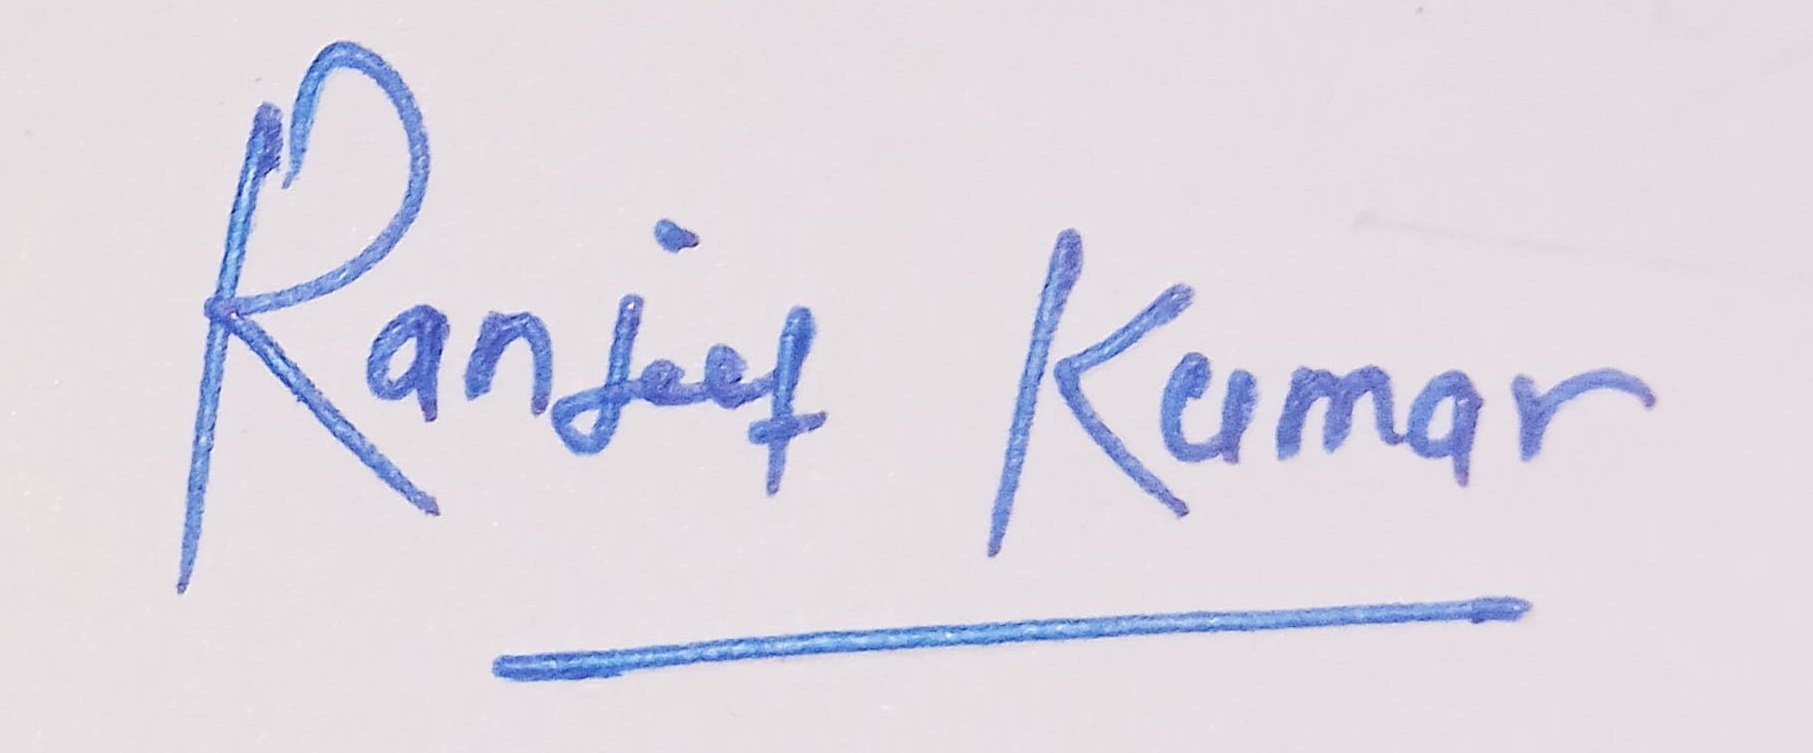 Ranjeet Kumar